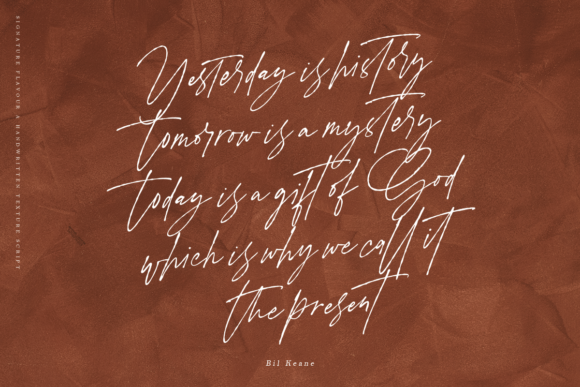 SIGNATURE FLAVOUR A HANDWRITTEN TEXTURE SCRIPT
Yesterday is history
tomorrow is a mystery
today is a gift of God
which is why we call it
the present
Bil Keane